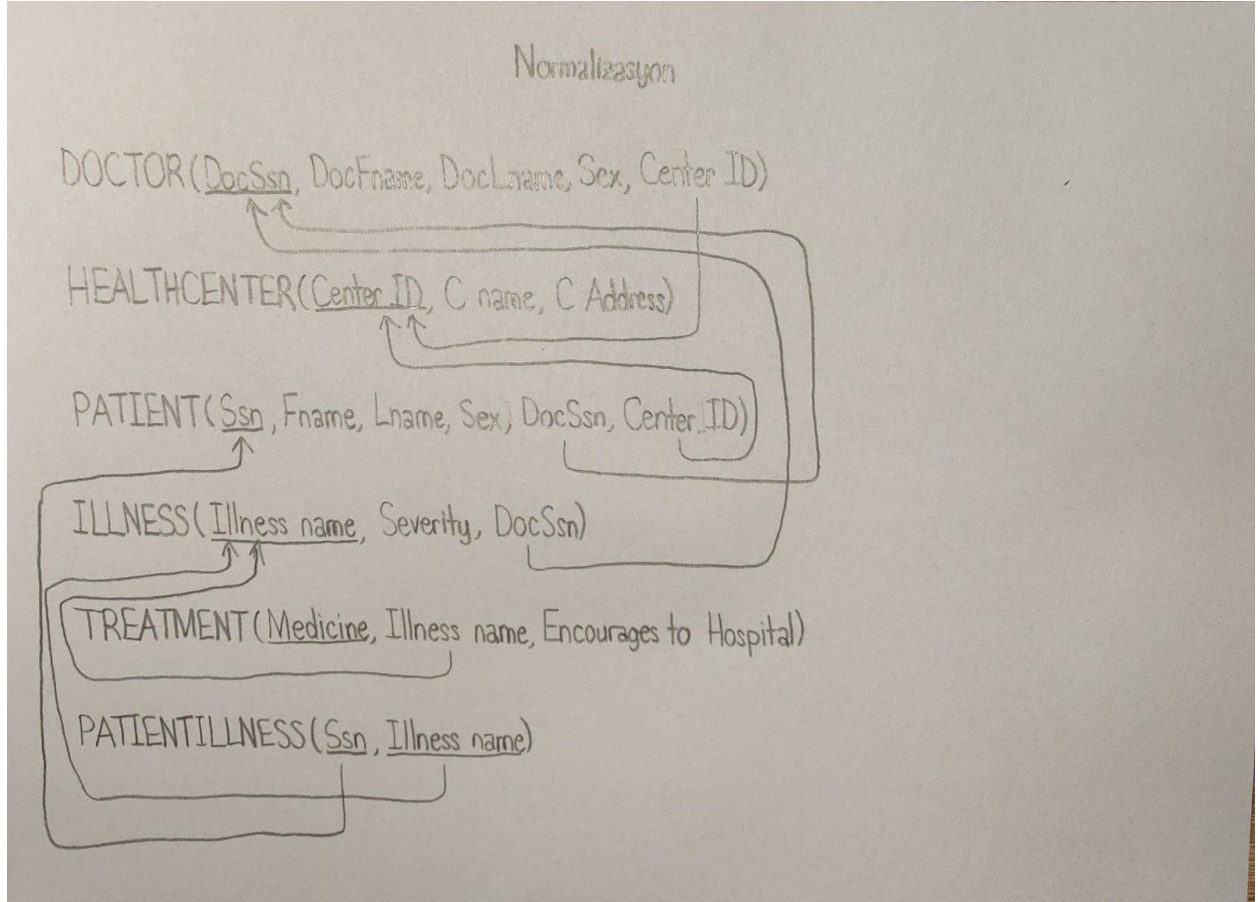 Normalizasyon
DOCTOR(DocSsn, DocFname, DocLname, Sex, Center ID)
HEALTHCENTER(Center ID, C name, C Address)
PATIENT(Ssn, Fname, Lname, Sex, DocSsn, Center ID)
ILLNESS(Illness name, Severity, DocSsn)
TREATMENT(Medicine, Illness name, Encourages to Hospital)
PATIENTILLNESS(Ssn, Illness name)